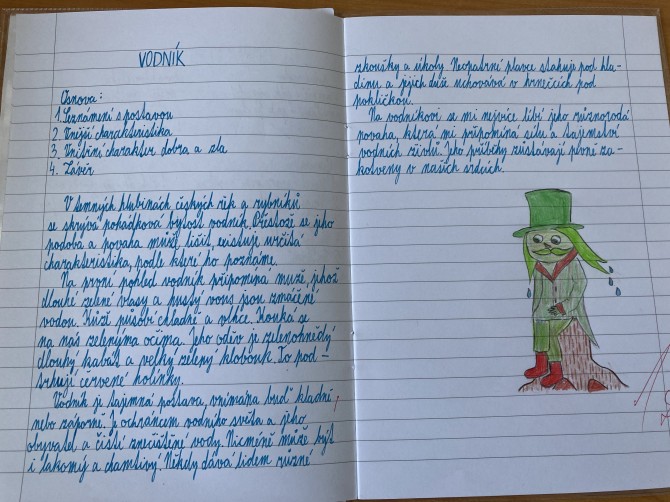 VODNÍK
Osnova:
1. Seznámení s postavou
2. Vnější charakteristika
3. Vnitřní charakter dobra a zla
4. Závěr
V temných hlubinách českých řek a rybníků
se skrývá pohádková bytost vodník. Přestože se jeho
podoba a povaha může lišit, existuje určitá
charakteristika, podle které ho poznáme.
Na první pohled vodník připomíná muže, jehož
dlouhé zelené vlasy a hustý vous jsou zmáčené
vodou. Kůže působí chladně a vlhce. Kouká se
na nás zelenýma očima. Jeho oděv je zelenohnědý
dlouhý kabát a velký zelený klobouk. To pod-
trhují červené holínky.
Vodník je tajemná postava, vnímána buď kladně
nebo záporně. Je ochráncem vodního světa a jeho
obyvatel a čistí znečištěné vody. Nicméně může být
i lakomý a chamtivý. Někdy dává lidem různé
zkoušky a úkoly. Neopatrní plavce stahuje pod hla-
dinu a jejich duše uchovává v hrnečcích pod
pokličkou.
Na vodníkovi se mi nejvíce líbí jeho různorodá
povaha, která mi připomíná sílu a tajemství
vodních živlů. Jeho příběhy zůstávají pevně za-
kotveny v našich srdcích.